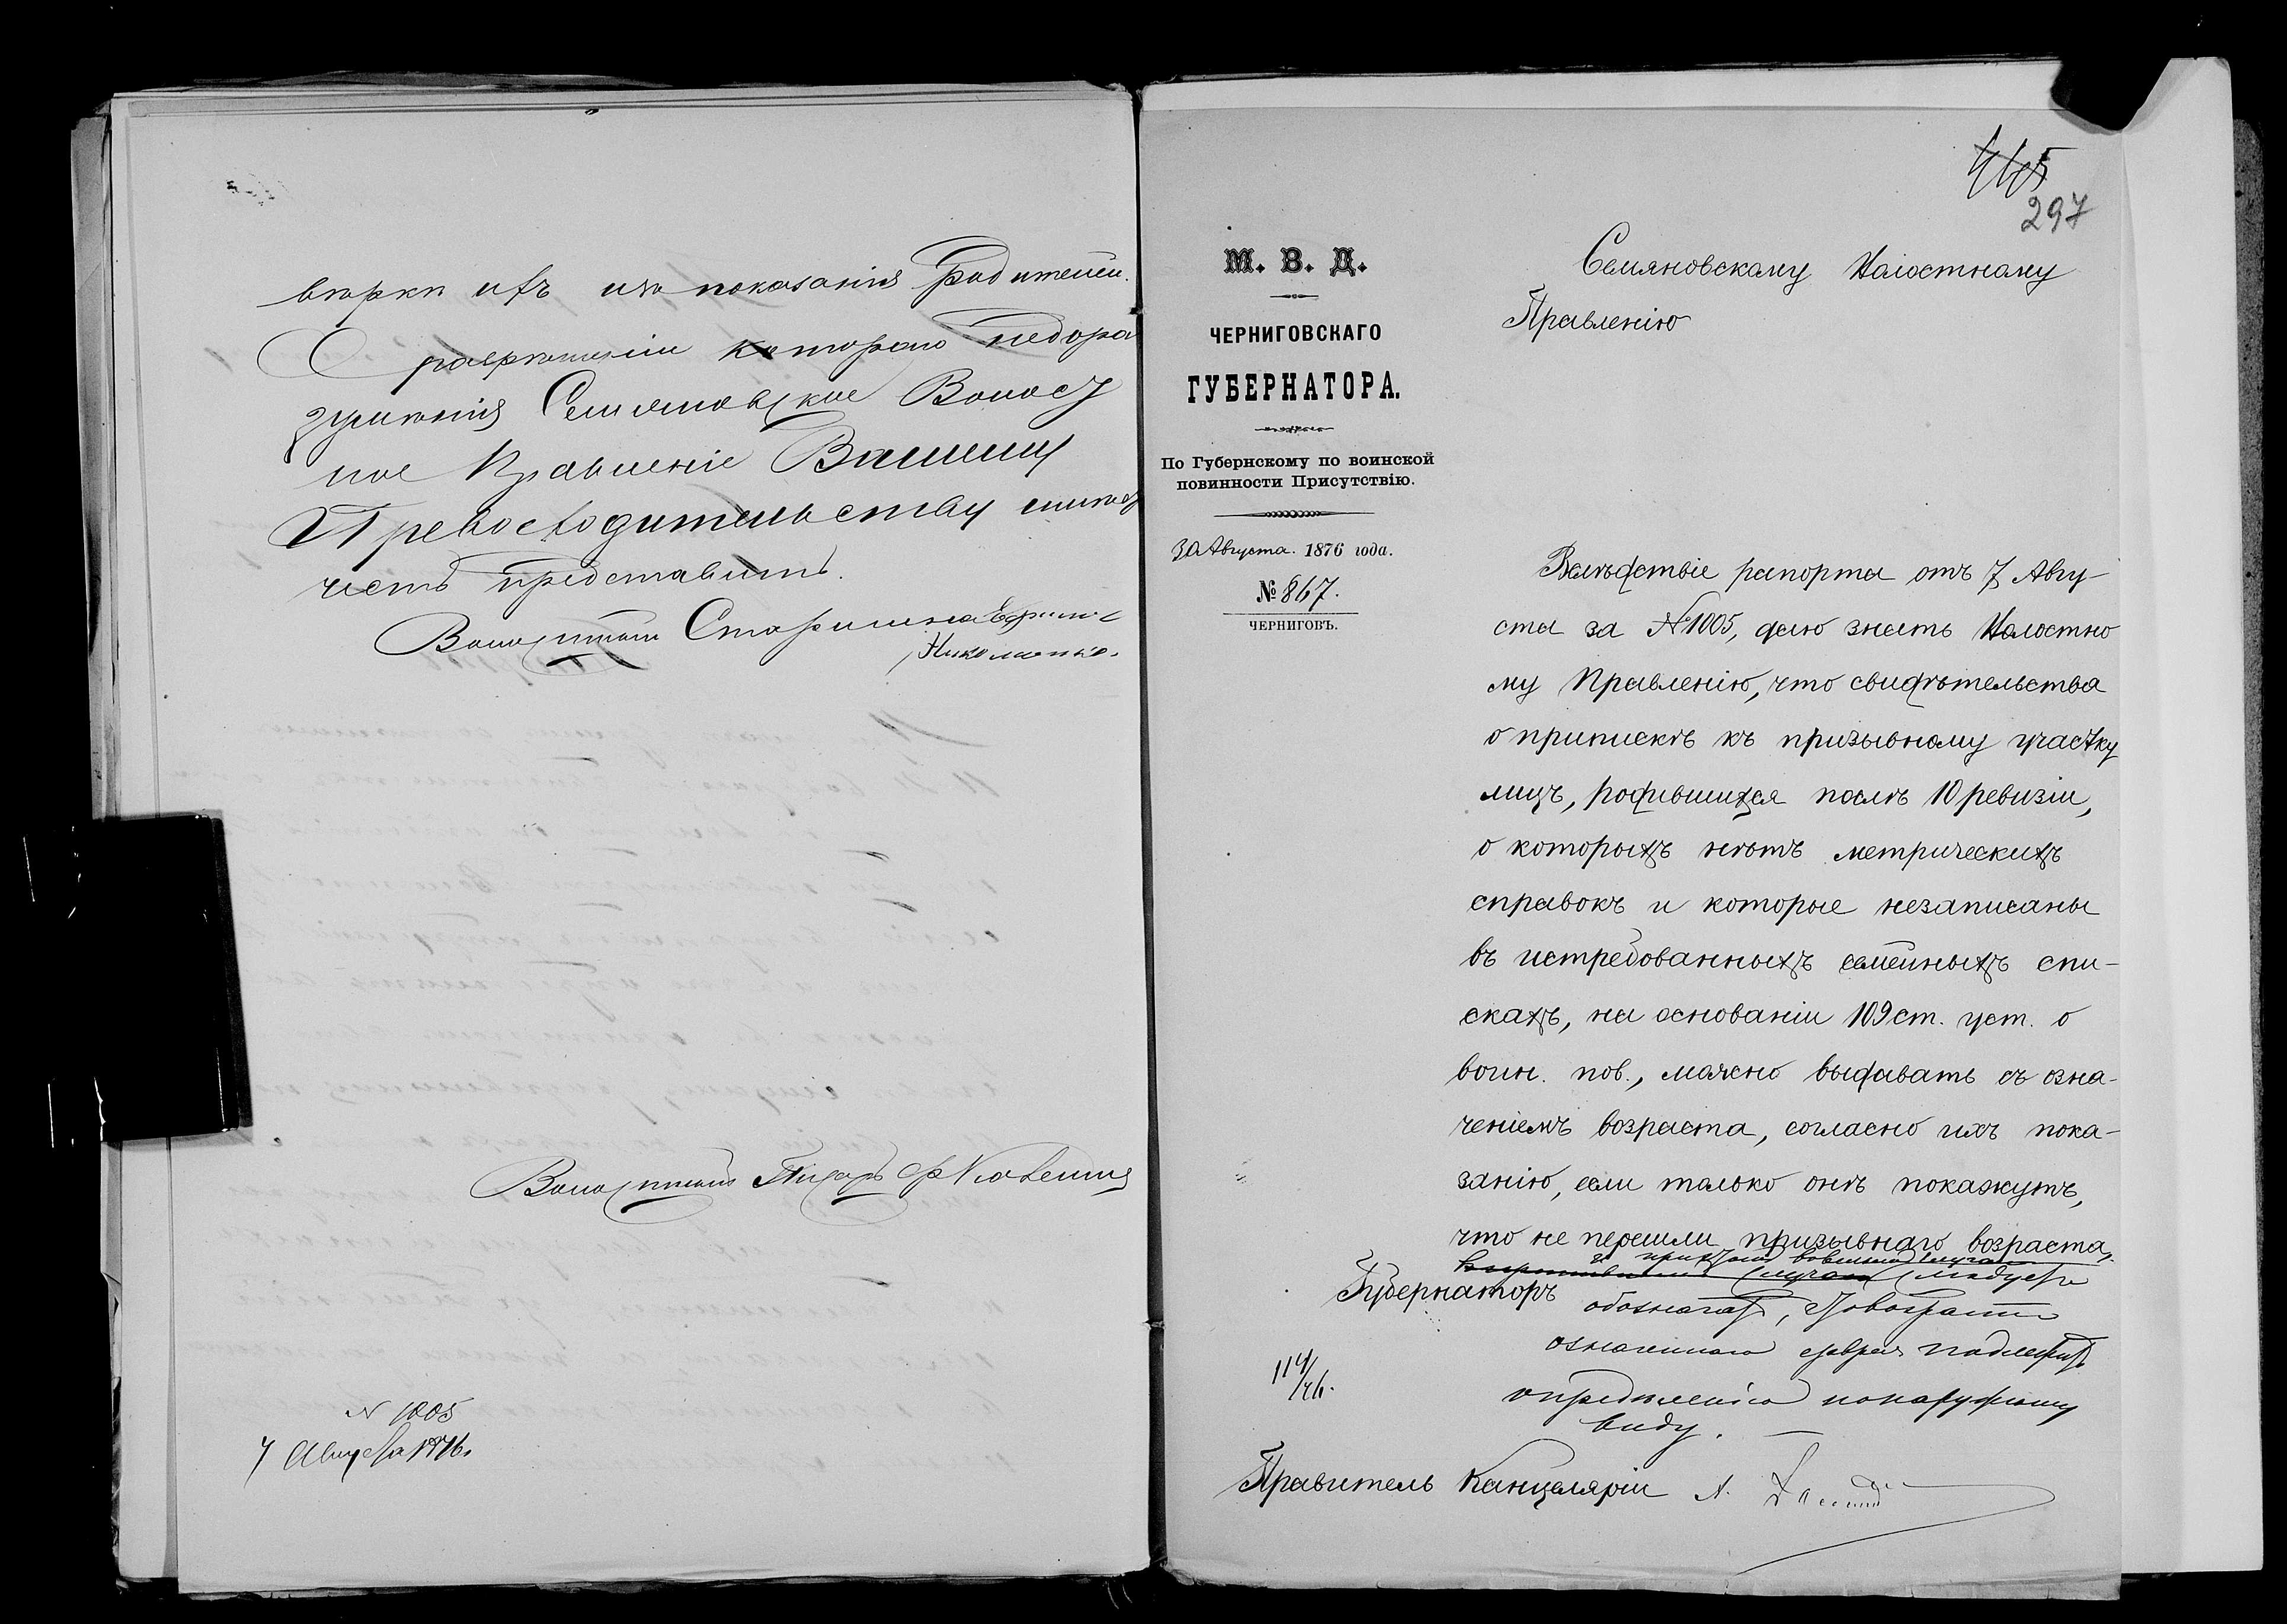 вѣрки ихъ изъ показанія родителей.
О разрѣшеніи котораго недора
зумѣнія Семяновское Волост
ное Правленіе Вашему
Превосходительству имѣетъ
честь представить.
Волостной Старшина
Николаенко.
Волостной Писарь
N 1005
7 Августа 1876.
465
297
М. В. Д.
ЧЕРНИГОВСКАГО
ГУБЕРНАТОРА.
По Губернскому по воинской
повинности Присутствію.
30 Августа. 1876 года.
№ 867.
ЧЕРНИГОВЪ.
Семяновскому Волостному
Правленію
Вслѣдствіе рапорта отъ 7 Авгу-
ста за № 1005, даю знать Волостно
му Правленію, что свидѣтельства
о припискѣ къ призывному участку
лицъ, родившихся послѣ 10 ревизіи,
о которыхъ нѣтъ метрическихъ
справокъ и которые незаписаны
въ истребованныхъ семейныхъ спи-
скахъ, на основаніи 109 ст. уст. о
воин. пов., можно выдавать съ озна-
ченіемъ возраста, согласно ихъ пока-
занію, если только онѣ покажутъ,
что не перешли призывнаго возраста,
случаѣ слѣдуетъ
Губернаторъ
обозначать,
означеннаго подлежитъ
опредѣленію понаружному
виду.
Правитель Канцеляріи